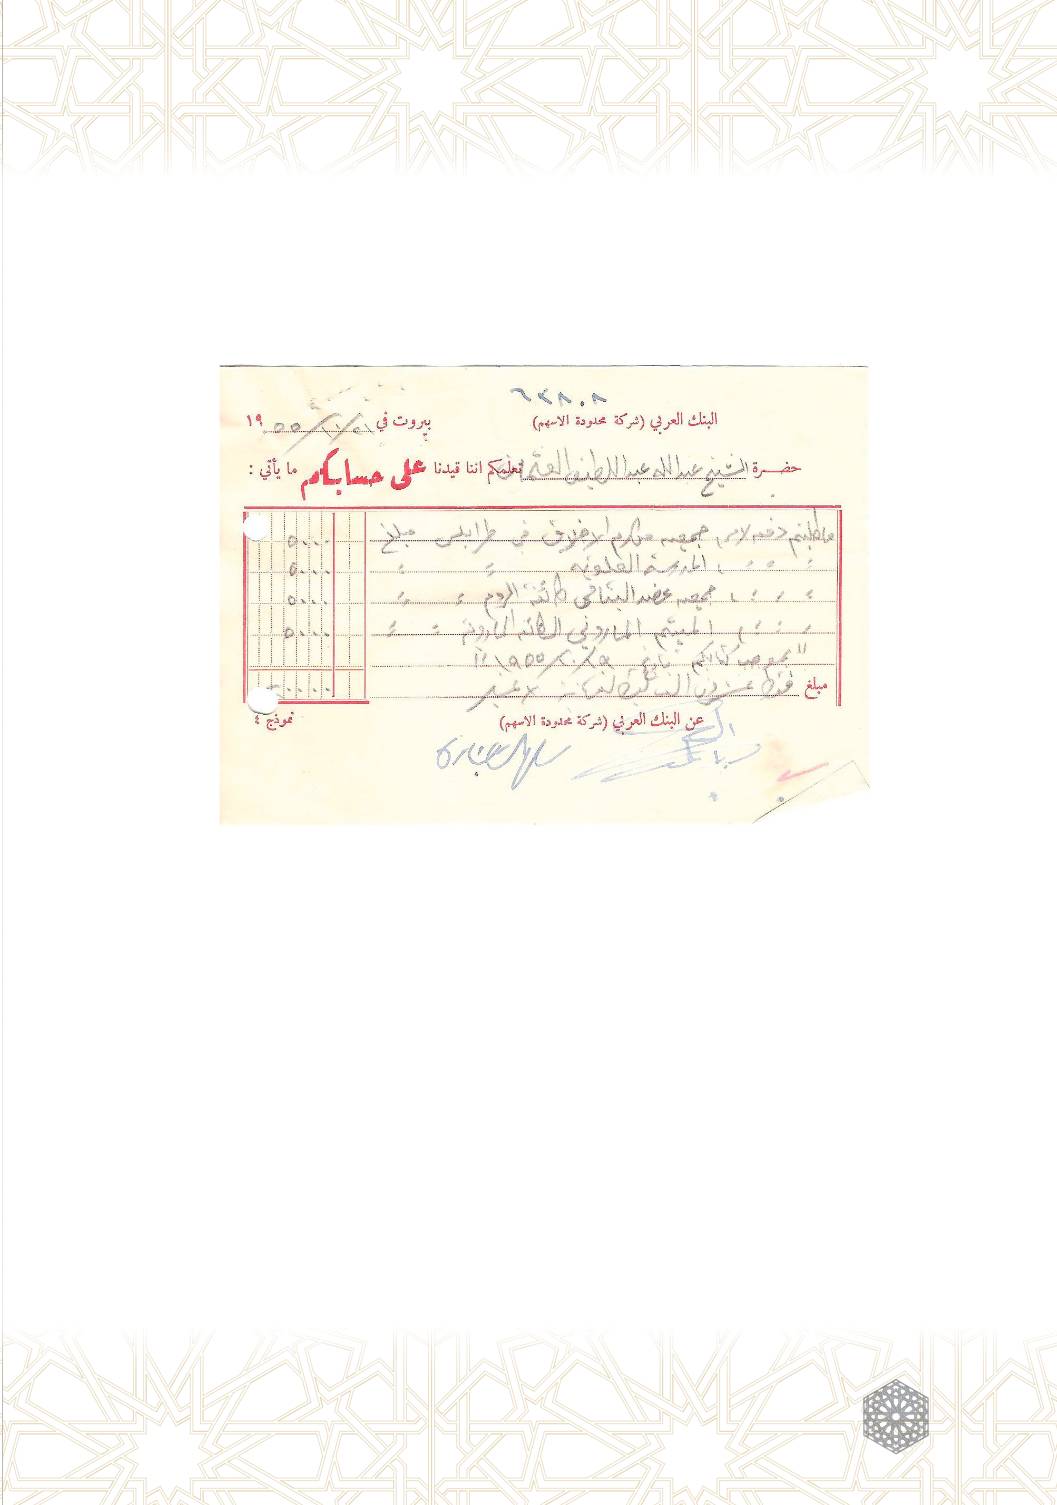 ٦٣٨٠٨
البنك العربي (شركة محدودة الاسهم)
بيروت في ٢١/١١/٥٥ ١٩
حضرة الشيخ عبدالله عبداللطيف العثمان نعلمكم اننا قيدنا على حسابكم ما يأتي :
ماطلبتم دفعه لامر جمعية مكارم الاخلاق في طرابلس مبلغ ٥٠٠٠
" " " المدرسة العلوية " " ٥٠٠٠
" " " جمعية عضد اليتامى طائفة الروم " " ٥٠٠٠
" " " الميتم الماروني الطائفة المارونية " " ٥٠٠٠
"بموجب كتابكم تاريخ ١٩٥٥/١٠/٢٩"
مبلغ فقط عشرون الف ليرة لبنانية لا غير ٢٠٠٠٠
عن البنك العربي (شركة محدودة الاسهم)
نموذج ٤